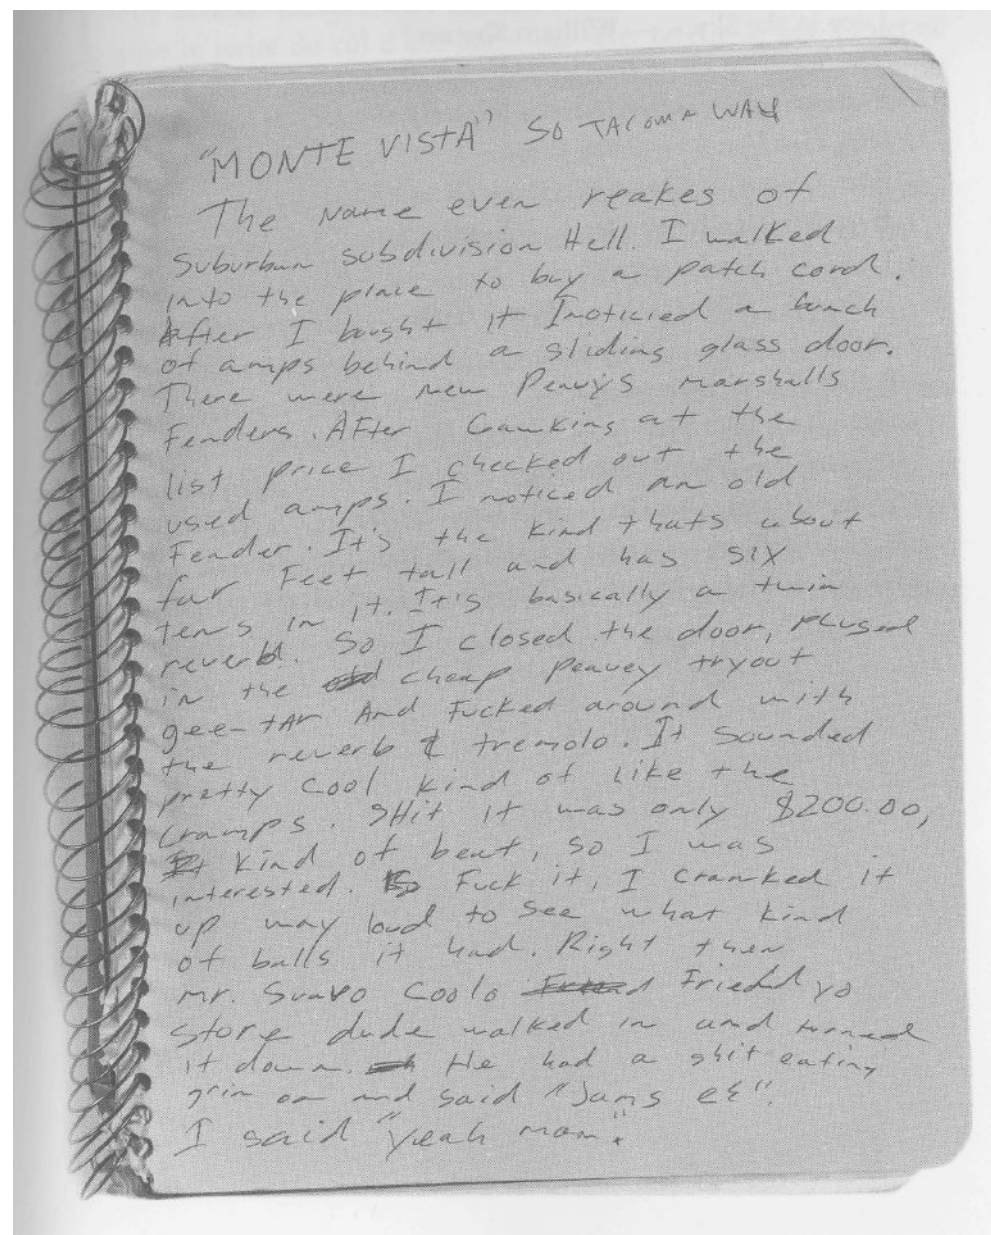 "MONTE VISTA" SO TACOMA WAY
The Name even reakes of
Suburban subdivision Hell. I walked
into the place to buy a patch cord.
After I bought it I noticied a bunch
of amps behind a sliding glass door.
There were new Peavys marshalls
Fenders. AFter Gawking at the
list price I checked out the
used amps. I noticed an old
Fender. It's the kind thats about
four Feet tall and has SIX
tens in it. It's basically a twin
reverb. So I closed the door, PLUGED
in the cheap Peavey tryout
gee-tAr And Fucked around with
the reverb & tremolo. It sounded
pretty cool kind of like the
Cramps. SHit it was only $200.00,
kind of beat, so I was
interested. Fuck it, I cranked it
up way loud to see what kind
of balls it had. Right then
Mr. Suavo Coolo Friedd yo
store dude walked in and turned
it down. He had a shit eating
grin on and said "Jams eh".
I said "yeah man".